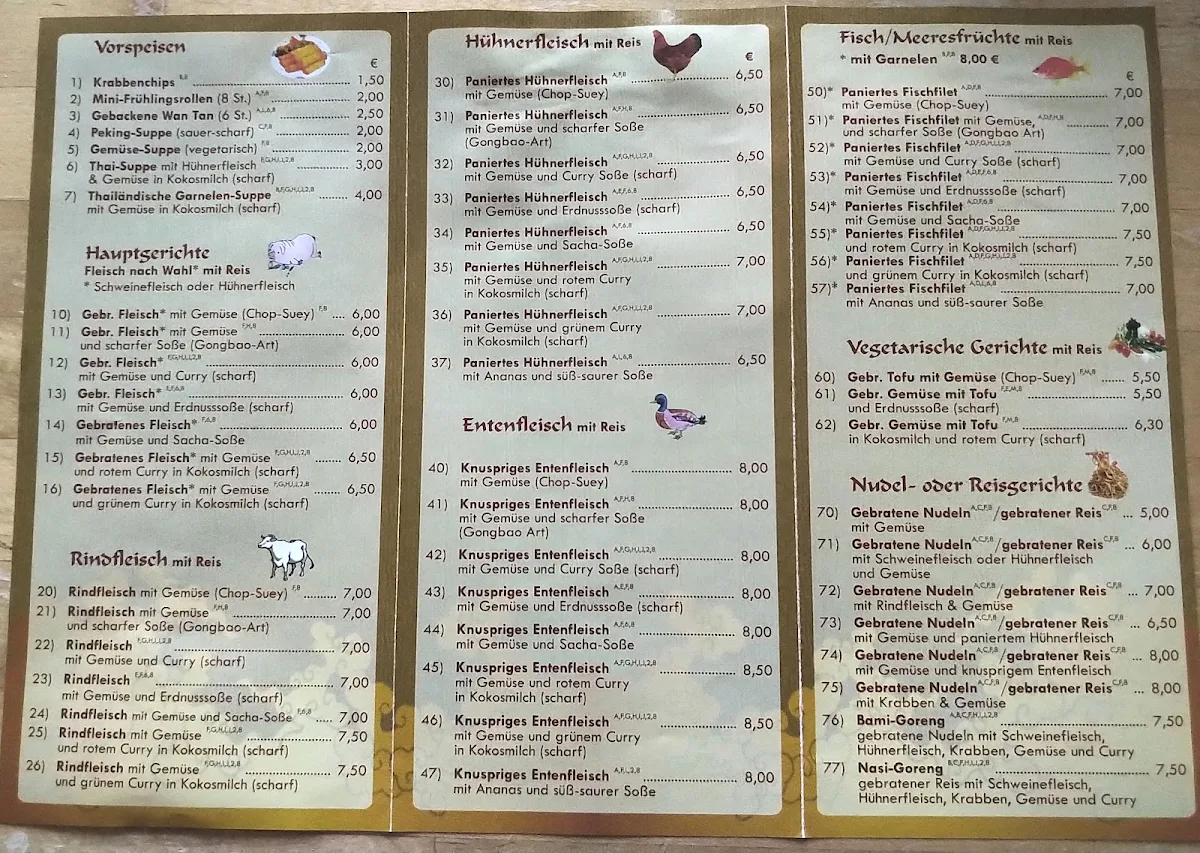 Vorspeisen
€
1) Krabbenchips ... 1,50
2) Mini-Frühlingsrollen (8 St.) A,F,8 ... 2,00
3) Gebackene Wan Tan (6 St.) ... 2,50
4) Peking-Suppe (sauer-scharf) ... 2,00
5) Gemüse-Suppe (vegetarisch) ... 2,00
6) Thai-Suppe mit Hühnerfleisch ... 3,00
& Gemüse in Kokosmilch (scharf)
7) Thailändische Garnelen-Suppe ... 4,00
mit Gemüse in Kokosmilch (scharf)
Hauptgerichte
Fleisch nach Wahl* mit Reis
* Schweinefleisch oder Hühnerfleisch
10) Gebr. Fleisch* mit Gemüse (Chop-Suey) ... 6,00
11) Gebr. Fleisch* mit Gemüse ... 6,00
und scharfer Soße (Gongbao-Art)
12) Gebr. Fleisch* ... 6,00
mit Gemüse und Curry (scharf)
13) Gebr. Fleisch* ... 6,00
mit Gemüse und Erdnusssoße (scharf)
14) Gebratenes Fleisch* ... 6,00
mit Gemüse und Sacha-Soße
15) Gebratenes Fleisch* mit Gemüse ... 6,50
und rotem Curry in Kokosmilch (scharf)
16) Gebratenes Fleisch* mit Gemüse ... 6,50
und grünem Curry in Kokosmilch (scharf)
Rindfleisch mit Reis
20) Rindfleisch mit Gemüse (Chop-Suey) ... 7,00
21) Rindfleisch mit Gemüse ... 7,00
und scharfer Soße (Gongbao-Art)
22) Rindfleisch ... 7,00
mit Gemüse und Curry (scharf)
23) Rindfleisch ... 7,00
mit Gemüse und Erdnusssoße (scharf)
24) Rindfleisch mit Gemüse und Sacha-Soße ... 7,00
25) Rindfleisch mit Gemüse ... 7,50
und rotem Curry in Kokosmilch (scharf)
26) Rindfleisch mit Gemüse ... 7,50
und grünem Curry in Kokosmilch (scharf)
Hühnerfleisch mit Reis
€
30) Paniertes Hühnerfleisch A,F,8 ... 6,50
mit Gemüse (Chop-Suey)
31) Paniertes Hühnerfleisch A,F,H,8 ... 6,50
mit Gemüse und scharfer Soße
(Gongbao-Art)
32) Paniertes Hühnerfleisch ... 6,50
mit Gemüse und Curry Soße (scharf)
33) Paniertes Hühnerfleisch ... 6,50
mit Gemüse und Erdnusssoße (scharf)
34) Paniertes Hühnerfleisch ... 6,50
mit Gemüse und Sacha-Soße
35) Paniertes Hühnerfleisch ... 7,00
mit Gemüse und rotem Curry
in Kokosmilch (scharf)
36) Paniertes Hühnerfleisch ... 7,00
mit Gemüse und grünem Curry
in Kokosmilch (scharf)
37) Paniertes Hühnerfleisch ... 6,50
mit Ananas und süß-saurer Soße
Entenfleisch mit Reis
40) Knuspriges Entenfleisch A,F,8 ... 8,00
mit Gemüse (Chop-Suey)
41) Knuspriges Entenfleisch A,F,H,8 ... 8,00
mit Gemüse und scharfer Soße
(Gongbao Art)
42) Knuspriges Entenfleisch ... 8,00
mit Gemüse und Curry Soße (scharf)
43) Knuspriges Entenfleisch A,E,F,8 ... 8,00
mit Gemüse und Erdnusssoße (scharf)
44) Knuspriges Entenfleisch A,F,6,8 ... 8,00
mit Gemüse und Sacha-Soße
45) Knuspriges Entenfleisch ... 8,50
mit Gemüse und rotem Curry
in Kokosmilch (scharf)
46) Knuspriges Entenfleisch ... 8,50
mit Gemüse und grünem Curry
in Kokosmilch (scharf)
47) Knuspriges Entenfleisch ... 8,00
mit Ananas und süß-saurer Soße
Fisch/Meeresfrüchte mit Reis
* mit Garnelen 8,00 €
€
50)* Paniertes Fischfilet A,D,F,8 ... 7,00
mit Gemüse (Chop-Suey)
51)* Paniertes Fischfilet mit Gemüse, ... 7,00
und scharfer Soße (Gongbao Art)
52)* Paniertes Fischfilet ... 7,00
mit Gemüse und Curry Soße (scharf)
53)* Paniertes Fischfilet ... 7,00
mit Gemüse und Erdnusssoße (scharf)
54)* Paniertes Fischfilet ... 7,00
mit Gemüse und Sacha-Soße
55)* Paniertes Fischfilet ... 7,50
und rotem Curry in Kokosmilch (scharf)
56)* Paniertes Fischfilet ... 7,50
und grünem Curry in Kokosmilch (scharf)
57)* Paniertes Fischfilet ... 7,00
mit Ananas und süß-saurer Soße
Vegetarische Gerichte mit Reis
60) Gebr. Tofu mit Gemüse (Chop-Suey) ... 5,50
61) Gebr. Gemüse mit Tofu ... 5,50
und Erdnusssoße (scharf)
62) Gebr. Gemüse mit Tofu ... 6,30
in Kokosmilch und rotem Curry (scharf)
Nudel- oder Reisgerichte
70) Gebratene Nudeln A,C,F,8 /gebratener Reis C,F,8 ... 5,00
mit Gemüse
71) Gebratene Nudeln A,C,F,8 /gebratener Reis C,F,8 ... 6,00
mit Schweinefleisch oder Hühnerfleisch
und Gemüse
72) Gebratene Nudeln A,C,F,8 /gebratener Reis C,F,8 ... 7,00
mit Rindfleisch & Gemüse
73) Gebratene Nudeln A,C,F,8 /gebratener Reis C,F,8 ... 6,50
mit Gemüse und paniertem Hühnerfleisch
74) Gebratene Nudeln A,C,F,8 /gebratener Reis C,F,8 ... 8,00
mit Gemüse und knusprigem Entenfleisch
75) Gebratene Nudeln A,C,F,8 /gebratener Reis C,F,8 ... 8,00
mit Krabben & Gemüse
76) Bami-Goreng ... 7,50
gebratene Nudeln mit Schweinefleisch,
Hühnerfleisch, Krabben, Gemüse und Curry
77) Nasi-Goreng ... 7,50
gebratener Reis mit Schweinefleisch,
Hühnerfleisch, Krabben, Gemüse und Curry